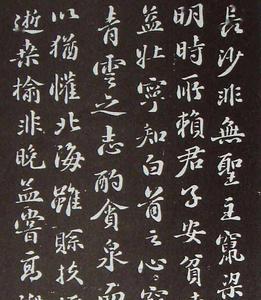 長沙非無聖主竄梁
明時所賴君子安貧
益壯寧知白首之心窮
青雲之志酌貪泉而
以猶懽北海雖賒扶
逝桑榆非晚孟嘗高